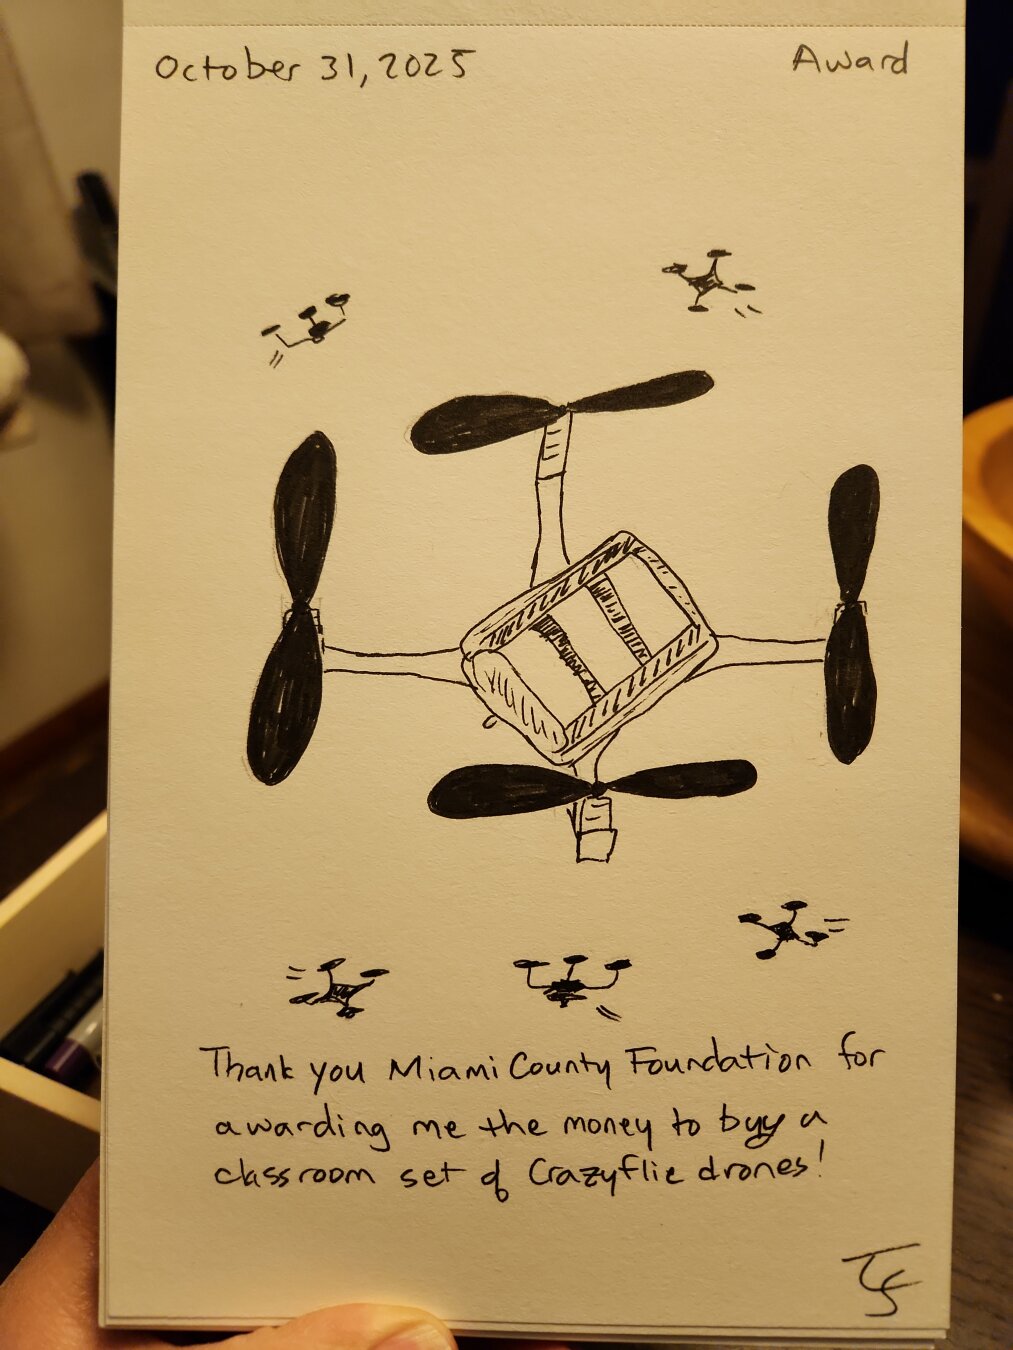 October 31, 2025
Award
Thank you Miami County Foundation for
awarding me the money to buy a
classroom set of Crazyflie drones!